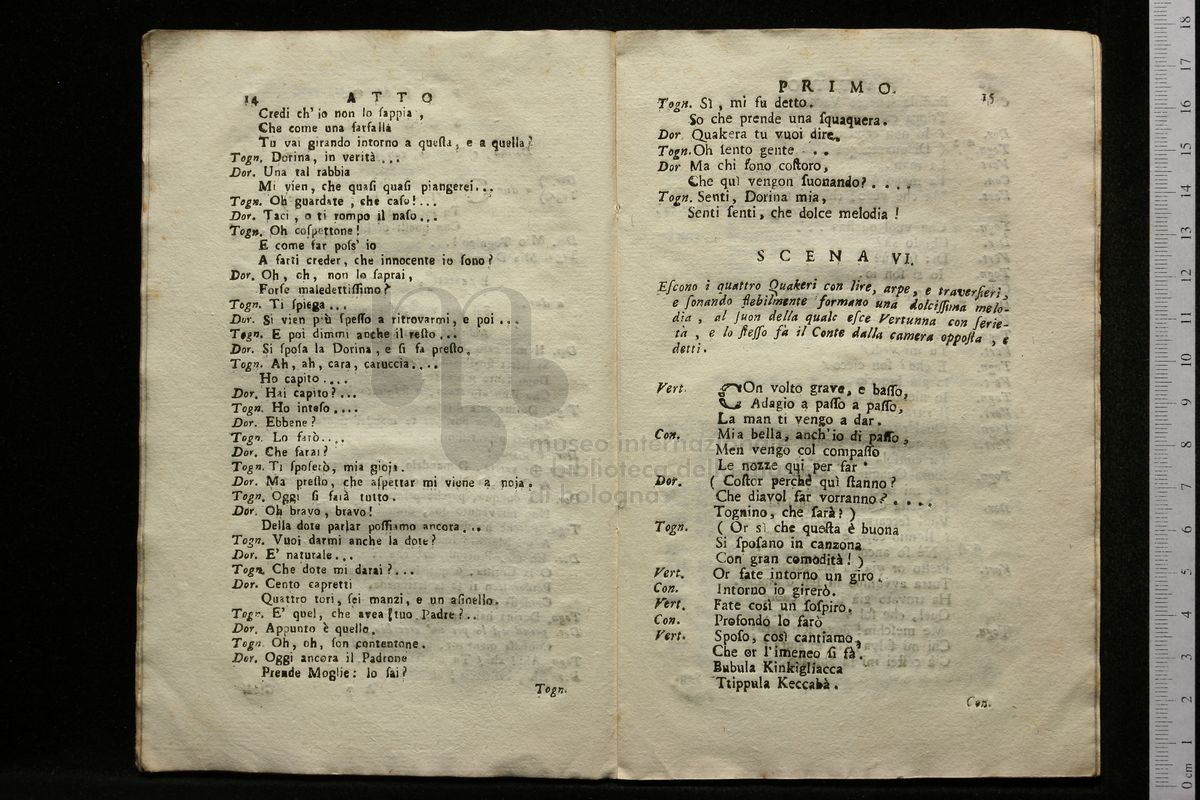 14 ATTO
Credi ch' io non lo sappia,
Che come una farfalla
Tu vai girando intorno a questa, e a quella?
Togn. Dorina, in verità ...
Dor. Una tal rabbia
Mi vien, che quasi quasi piangerei...
Togn. Oh guardate, che caso!...
Dor. Taci, o ti rompo il naso...
Togn. Oh cospettone!
E come far poss' io
A farti creder, che innocente io sono?
Dor. Oh, oh, non lo saprai,
Forse maledettissimo?
Togn. Ti spiega...
Dor. Si vien più spesso a ritrovarmi, e poi ...
Togn. E poi dimmi anche il resto...
Dor. Si sposa la Dorina, e si fa presto.
Togn. Ah, ah, cara, caruccia....
Ho capito ....
Dor. Hai capito?...
Togn. Ho inteso....
Dor. Ebbene?
Togn. Lo farò....
Dor. Che farai?
Togn. Ti sposerò, mia gioja.
Dor. Ma presto, che aspettar mi viene a noja.
Togn. Oggi si farà tutto.
Dor. Oh bravo, bravo!
Della dote parlar possiamo ancora...
Togn. Vuoi darmi anche la dote?
Dor. E' naturale...
Togn. Che dote mi darai?...
Dor. Cento capretti
Quattro tori, sei manzi, e un asinello.
Togn. E' quel, che avea tuo Padre?..
Dor. Appunto è quello.
Togn. Oh, oh, son contentone.
Dor. Oggi ancora il Padrone
Prende Moglie: lo sai?
Togn.
PRIMO. 15
Togn. Sì, mi fu detto.
So che prende una squaquera.
Dor. Quakera tu vuoi dire.
Togn. Oh sento gente ...
Dor Ma chi sono costoro,
Che quì vengon suonando?....
Togn. Senti, Dorina mia,
Senti senti, che dolce melodia!
SCENA VI.
Escono i quattro Quakeri con lire, arpe, e traversieri,
e sonando flebilmente formano una dolcissima melo-
dia, al suon della quale esce Vertunna con serie-
tà, e lo stesso fà il Conte dalla camera opposta, e
detti.
Vert. COn volto grave, e basso,
Adagio a passo a passo,
La man ti vengo a dar.
Con. Mia bella, anch'io di passo,
Men vengo col compasso
Le nozze qui per far
Dor. ( Costor perchè quì stanno?
Che diavol far vorranno?....
Tognino, che sarà? )
Togn. ( Or sì che questa è buona
Si sposano in canzona
Con gran comodità! )
Vert. Or fate intorno un giro.
Con. Intorno io girerò.
Vert. Fate così un sospiro.
Con. Profondo lo farò
Vert. Sposo, così cantiamo,
Che or l'imeneo si fà.
Bubula Kinkigliacca
Ttippula Keccabà.
Con.
museo internazionale
e biblioteca della musica
di bologna
0 cm 1 2 3 4 5 6 7 8 9 10 11 12 13 14 15 16 17 18